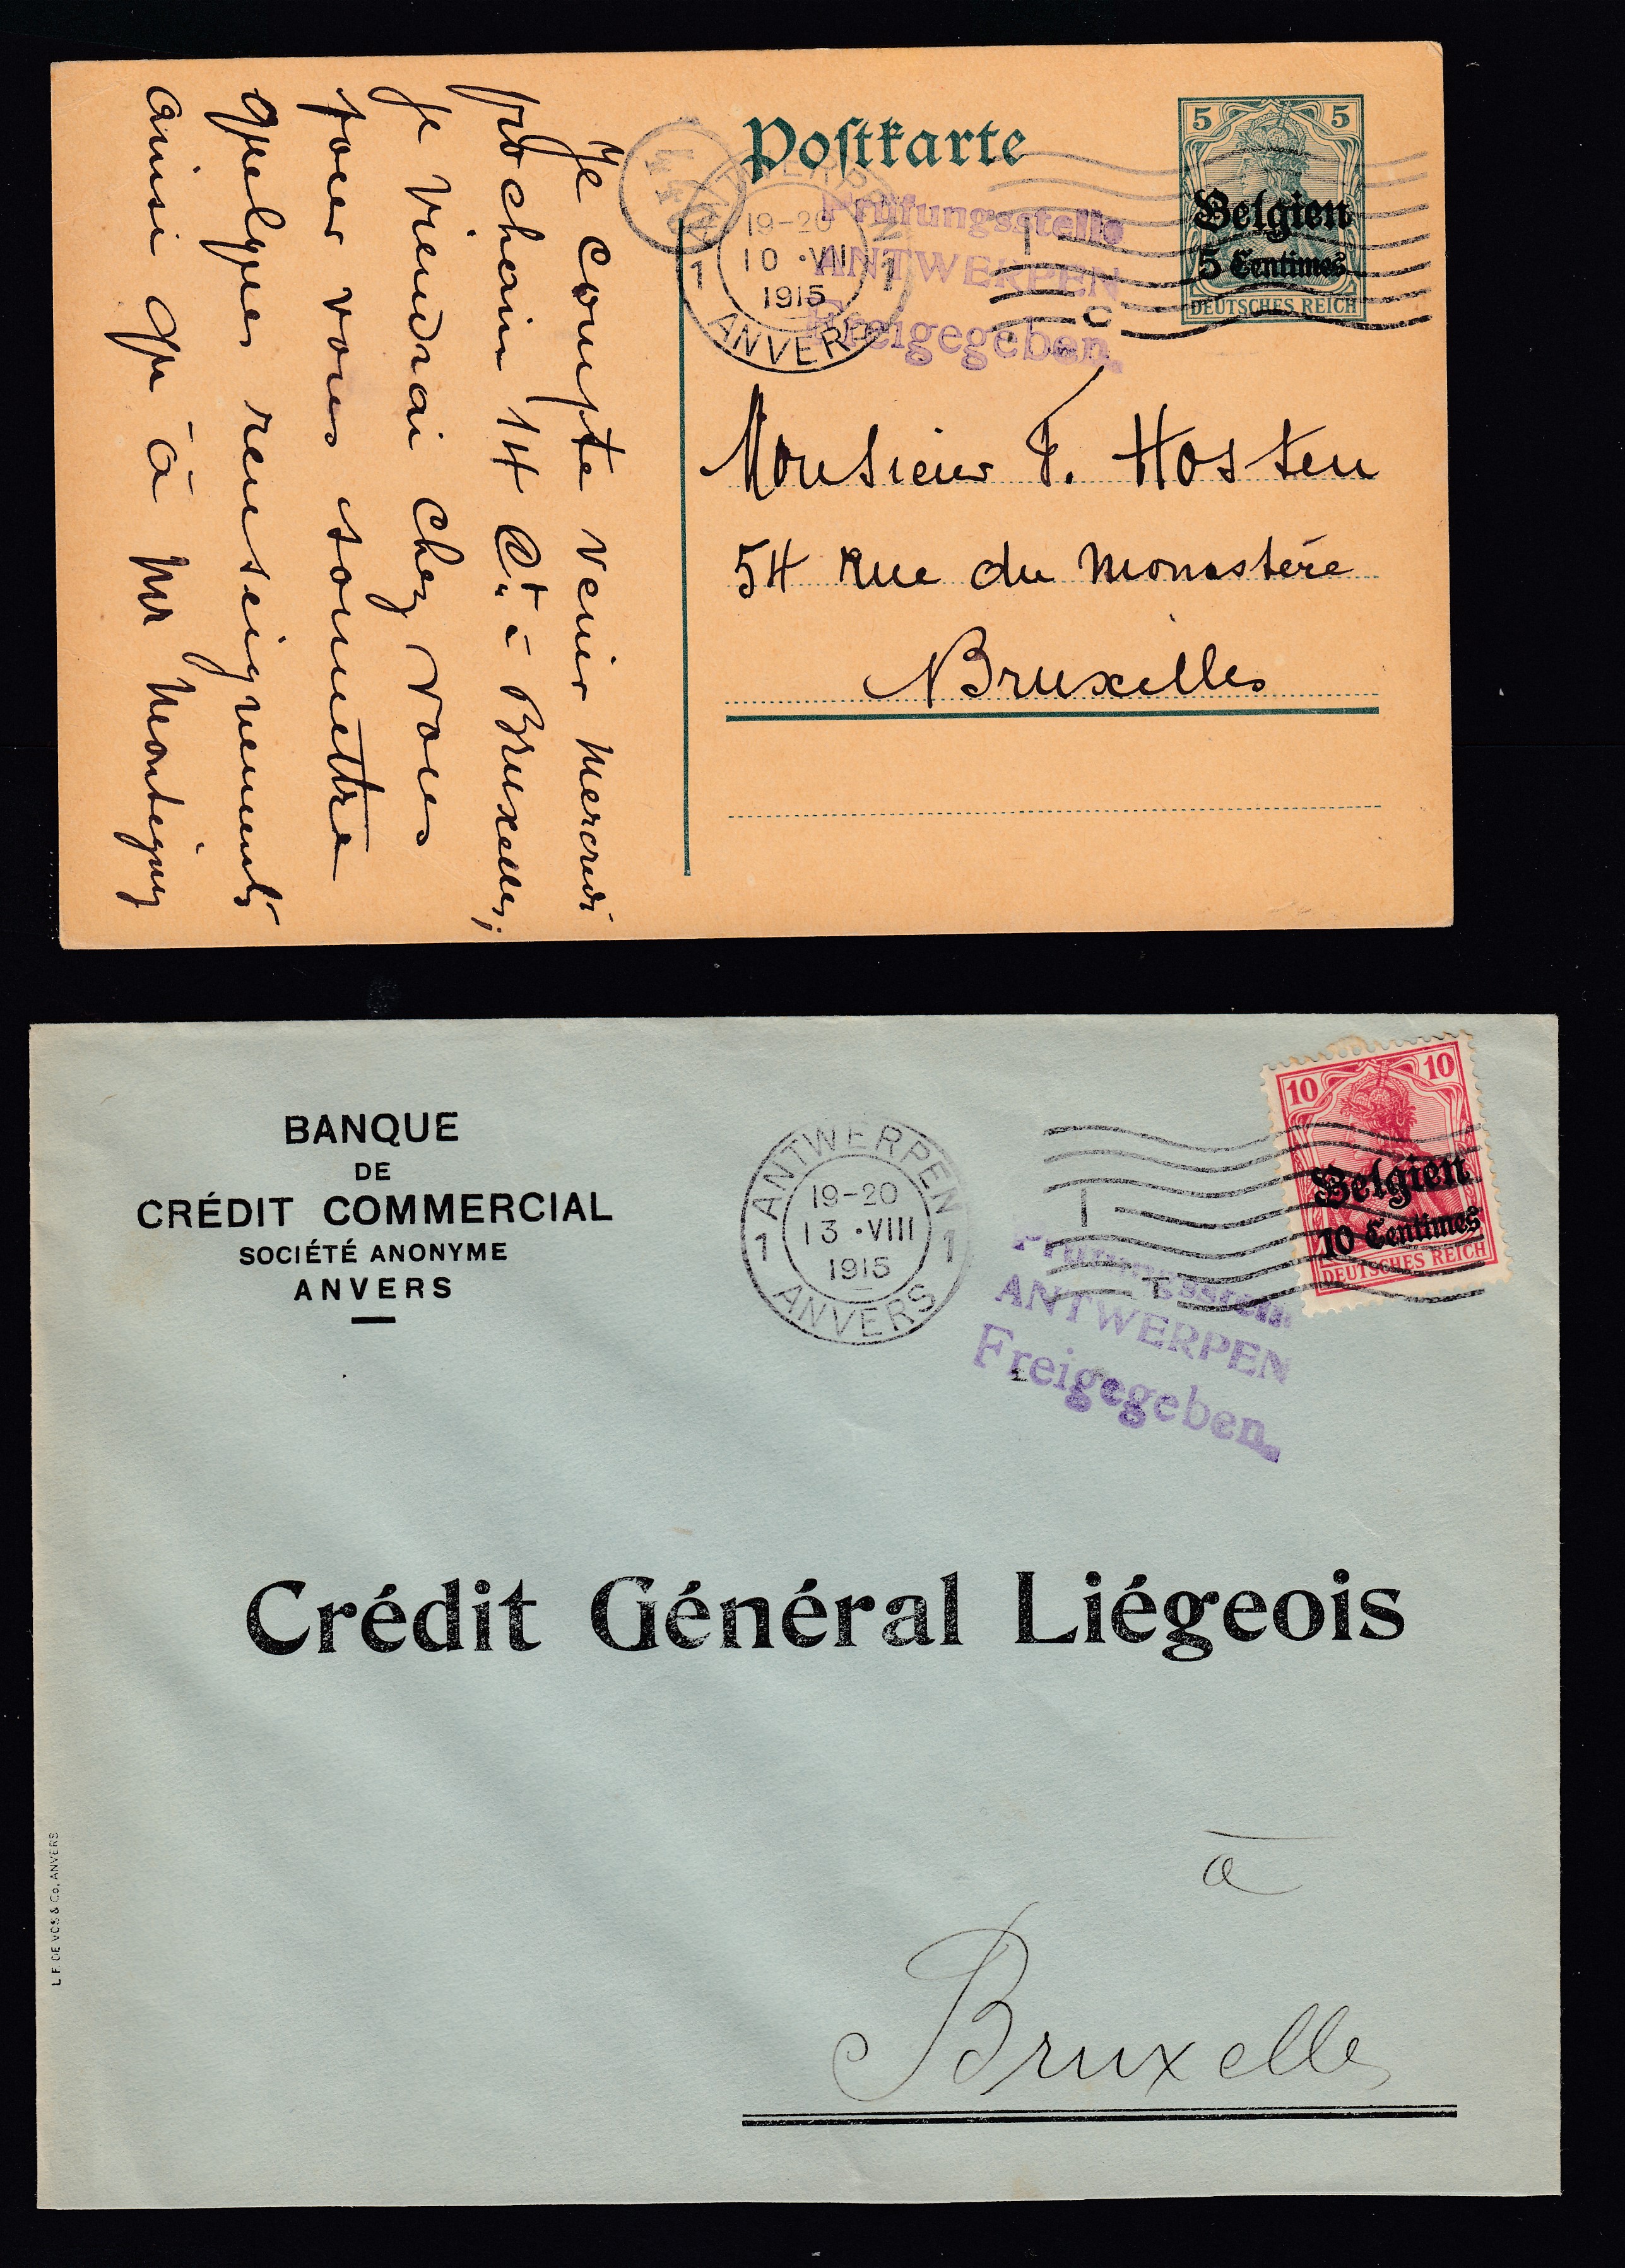 Postkarte
5 5
Belgien
5 Centimes
DEUTSCHES REICH
ANTWERPEN
19-20
10 · VII
1915
1 1
ANVERS
Prüfungsstelle
ANTWERPEN
Freigegeben.
Monsieur F. Hosten
54 Rue du Monastère
Bruxelles
Je compte venir mercredi
prochain 14 Ct. à Bruxelles;
je viendrai chez vous
pour vous soumettre
quelques renseignements
ainsi qu'à Mr Montigny
BANQUE
DE
CRÉDIT COMMERCIAL
SOCIÉTÉ ANONYME
ANVERS
ANTWERPEN
19-20
13 · VIII
1915
1 1
ANVERS
10 10
Belgien
10 Centimes
DEUTSCHES REICH
Prüfungsstelle
ANTWERPEN
Freigegeben.
Crédit Général Liégeois
à
Bruxelles
L.F. DE VOS & Co. ANVERS